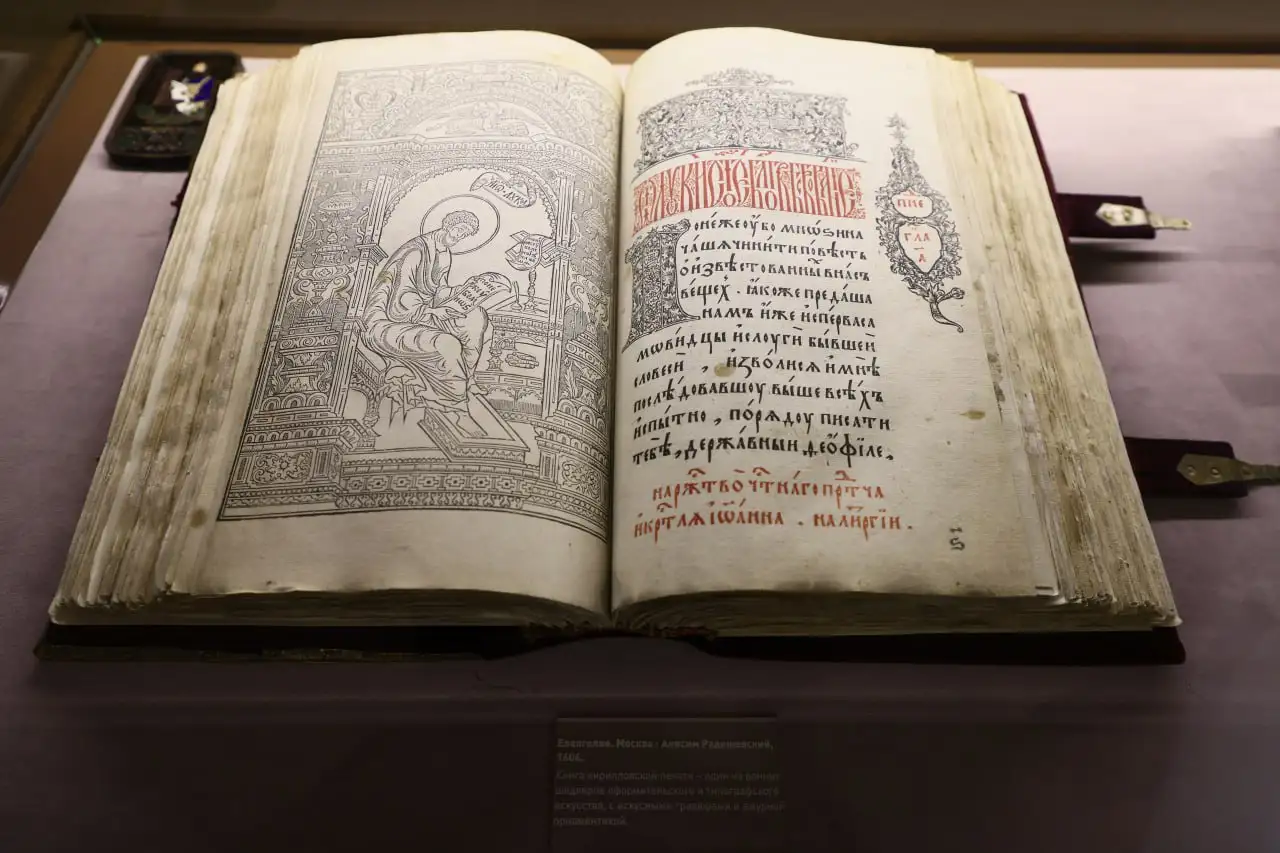 понѐже ᲂу҆́бо мно́ѕи на
ча́ша чини́ти по́вѣсть
о҆ и҆звѣ́стованныхъ въ на́съ
ве́щехъ . ꙗ҆́коже преда́ша
на́мъ и҆̀же и҆спе́рва са
мови́дцы и҆ слꙋги̑ бы́вшеи
словесѝ , и҆зво́лисѧ и҆ мнѣ̀
послѣ́довавшꙋ вы́ше всѣ́хъ
и҆спы́тно , по́рѧдꙋ писа́ти
тебѣ̀ , держа́вныи ѳео́філе ,
на ржⷭ҇тво̀ чтⷭ҇на́го прⷣтча
и҆ крⷭ҇тлѧ і҆ѡа́нна . на лиⷮргіи .
Евангелие. Москва: Анисим Радишевский,
1606.
Книга кирилловской печати – один из ранних
шедевров оформительского и типографского
искусства, с искусными гравюрами и ажурной
орнаментикой.